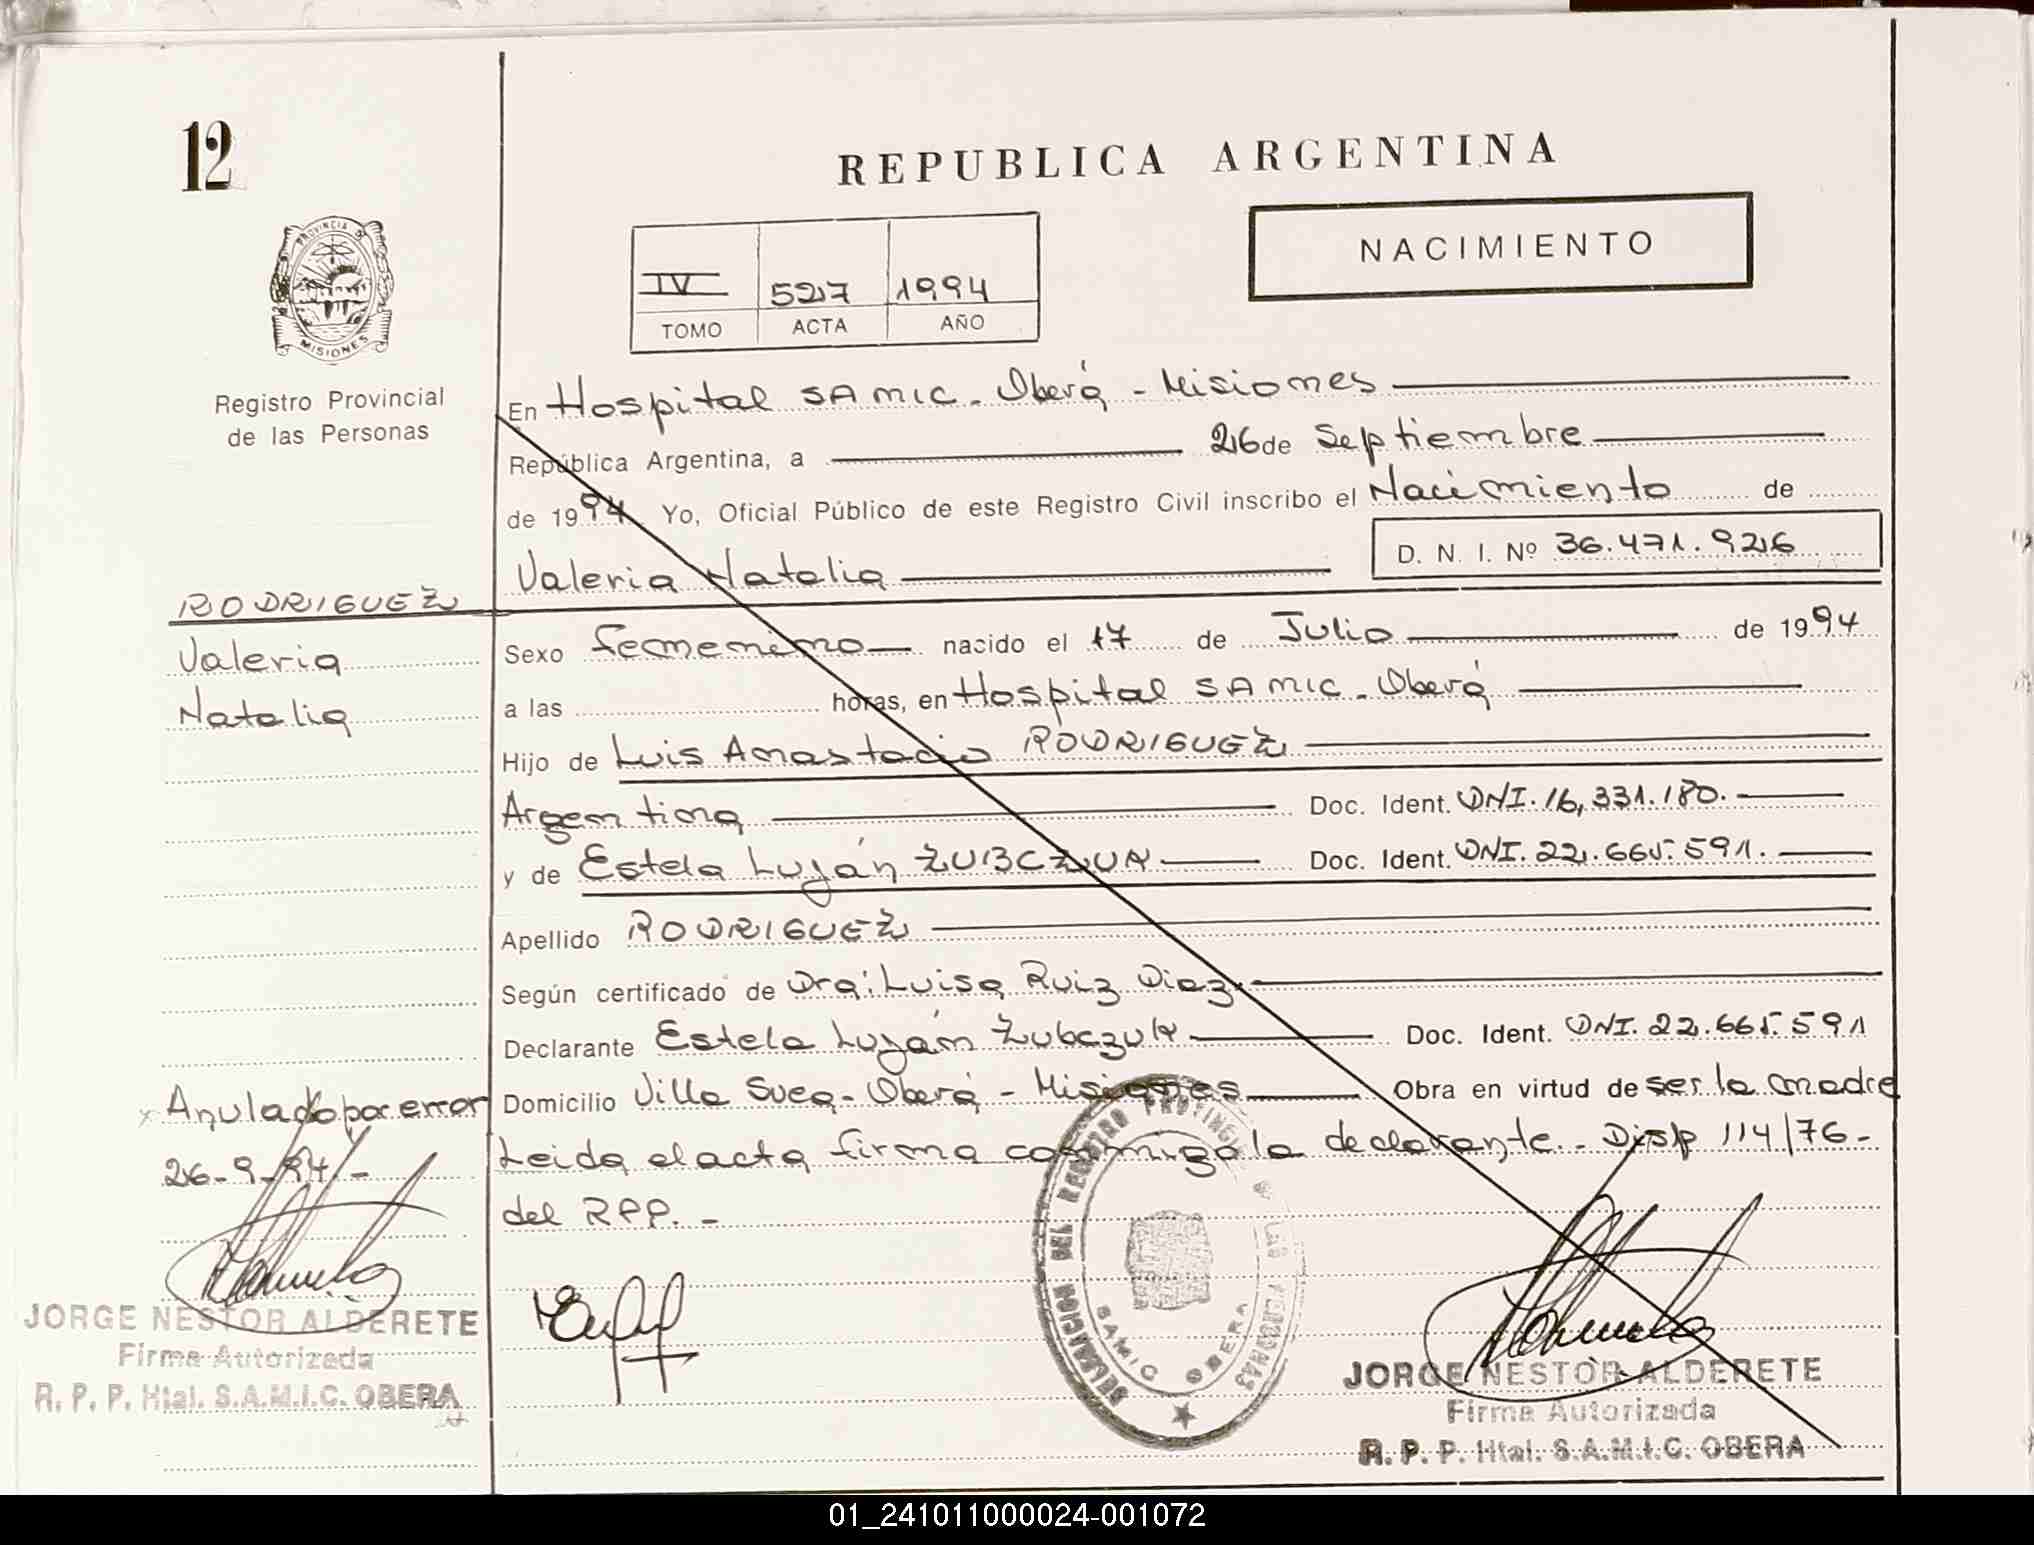 12
REPUBLICA ARGENTINA
PROVINCIA D
MISIONES
Registro Provincial
de las Personas
IV 527 1994
TOMO ACTA AÑO
NACIMIENTO
En Hospital SAMIC - Oberá - Misiones
República Argentina, a 26 de Septiembre
de 1994 Yo, Oficial Público de este Registro Civil inscribo el Nacimiento de
Valeria Natalia D. N. I. Nº 36.471.926
RODRIGUEZ
Valeria
Natalia
Sexo femenino nacido el 17 de Julio de 1994
a las horas, en Hospital SAMIC - Oberá
Hijo de Luis Anastacio RODRIGUEZ
Argentina Doc. Ident. DNI. 16,331.180.
y de Estela Luján ZUBCZUK Doc. Ident. DNI. 22.665.591.
Apellido RODRIGUEZ
Según certificado de Dra: Luisa Ruiz Diaz
Declarante Estela Luján Zubczuk Doc. Ident. DNI. 22.665.591
Domicilio Villa Suea - Oberá - Misiones Obra en virtud de ser la madre
Leida el acta firma conmigo la declarante. - Disp 114/76 -
del RPP. -
Anulado por error
26-9-94 -
JORGE NESTOR ALDERETE
Firma Autorizada
R. P. P. Htal. S.A.M.I.C. OBERA
DELEGACION DEL REGISTRO PROVINCIAL DE LAS PERSONAS
SAMIC OBERA
JORGE NESTOR ALDERETE
Firma Autorizada
R. P. P. Htal. S.A.M.I.C. OBERA
01_241011000024-001072